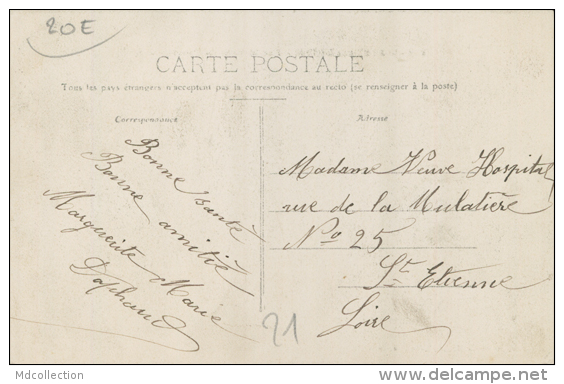 20E
CARTE POSTALE
Tous les pays étrangers n'acceptent pas la correspondance au recto (se renseigner à la poste)
Correspondance
Adresse
Bonne santé
Bonne amitié
Marguerite Marie
Madame Veuve Hospital
rue de la Mulatière
No 25
St Etienne
Loire
21
Mdcollection
delcampe.net